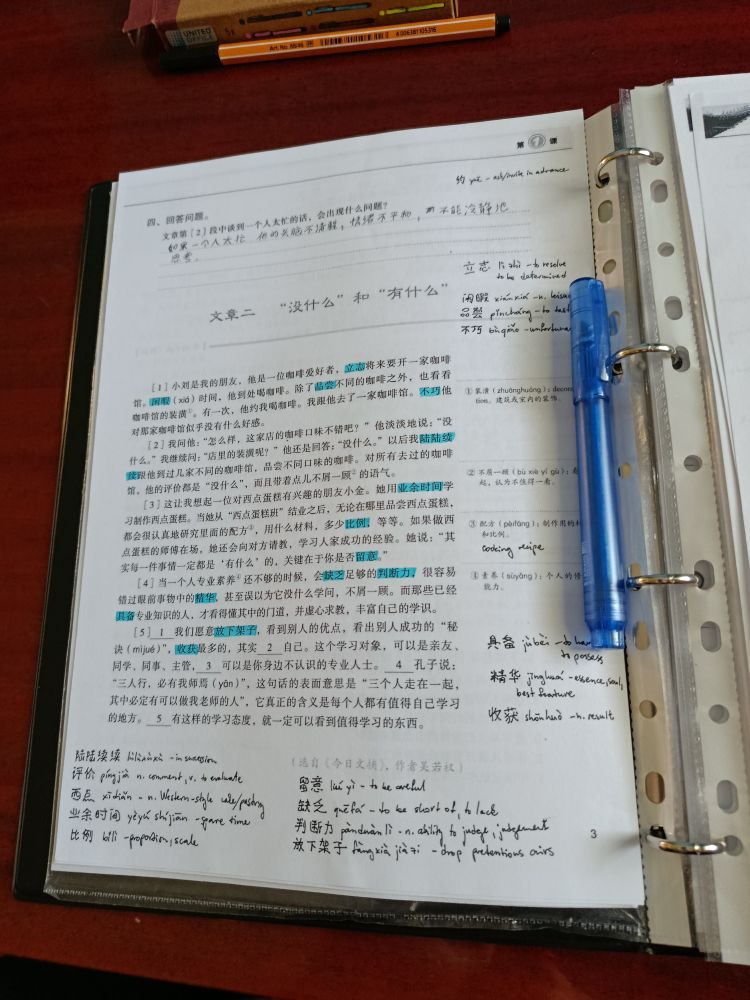 UNITED
OFFICE
Art. No. 88/46
4 006381 105316
第1课
约 yuē - ask/invite in advance
四、回答问题。
文章第[2]段中谈到一个人太忙的话，会出现什么问题？
如果一个人太忙 他的头脑不清醒，情绪不平和，而不能冷静地
思考.
立志 lì zhì - to resolve
to be determined
闲暇 xiánxiá - n. leisure
品尝 pǐncháng - to taste
不巧 bùqiǎo - unfortuna
文章二 “没什么”和“有什么”
[1] 小刘是我的朋友，他是一位咖啡爱好者，立志将来要开一家咖啡
馆。闲暇（xiá）时间，他到处喝咖啡。除了品尝不同的咖啡之外，也看看
咖啡馆的装潢①。有一次，他约我喝咖啡。我跟他去了一家咖啡馆。不巧他
对那家咖啡馆似乎没有什么好感。
[2] 我问他：“怎么样，这家店的咖啡口味不错吧？”他淡淡地说：“没
什么。”我继续问：“店里的装潢呢？”他还是回答：“没什么。”以后我陆陆续
续跟他到过几家不同的咖啡馆，品尝不同口味的咖啡。对所有去过的咖啡
馆，他的评价都是“没什么”，而且带着点儿不屑一顾②的语气。
[3] 这让我想起一位对西点蛋糕有兴趣的朋友小金。她用业余时间学
习制作西点蛋糕。当她从“西点蛋糕班”结业之后，无论在哪里品尝西点蛋糕，
都会很认真地研究里面的配方③，用什么材料，多少比例，等等。如果做西
点蛋糕的师傅在场，她还会向对方请教，学习人家成功的经验。她说：“其
实每一件事情一定都是‘有什么’的，关键在于你是否留意。”
[4] 当一个人专业素养④还不够的时候，会缺乏足够的判断力，很容易
错过眼前事物中的精华，甚至误以为它没什么学问，不屑一顾。而那些已经
具备专业知识的人，才看得懂其中的门道，并虚心求教，丰富自己的学识。
[5] 1 我们愿意放下架子，看到别人的优点，看出别人成功的“秘
诀（mìjué）”，收获最多的，其实 2 自己。这个学习对象，可以是亲友、
同学、同事、主管， 3 可以是你身边不认识的专业人士。 4 孔子说：
“三人行，必有我师焉（yān）”，这句话的表面意思是“三个人走在一起，
其中必定有可以做我老师的人”，它真正的含义是每个人都有值得自己学习
的地方。 5 有这样的学习态度，就一定可以看到值得学习的东西。
（选自《今日文摘》，作者吴若权）
①装潢（zhuānghuáng）：decora
tion。建筑或室内的装饰。
②不屑一顾（bú xiè yí gù）：看
起，认为不值得一看。
③配方（pèifāng）：制作用的材
和比例。
cooking recipe
④素养（sùyǎng）：个人的修
能力。
具备 jùbèi - to have
to possess
精华 jīnghuá - essence, soul,
best feature
收获 shōuhuò - n. result
陆陆续续 lùlùxùxù - in succession
评价 píngjià n. comment, v. to evaluate
西点 xīdiǎn - n. Western-style cake/pastry
业余时间 yèyú shíjiān - spare time
比例 bǐlì - proportion, scale
留意 liú yì - to be careful
缺乏 quēfá - to be short of, to lack
判断力 pànduàn lì - n. ability to judge, judgement
放下架子 fàngxià jiàzi - drop pretentious airs
3